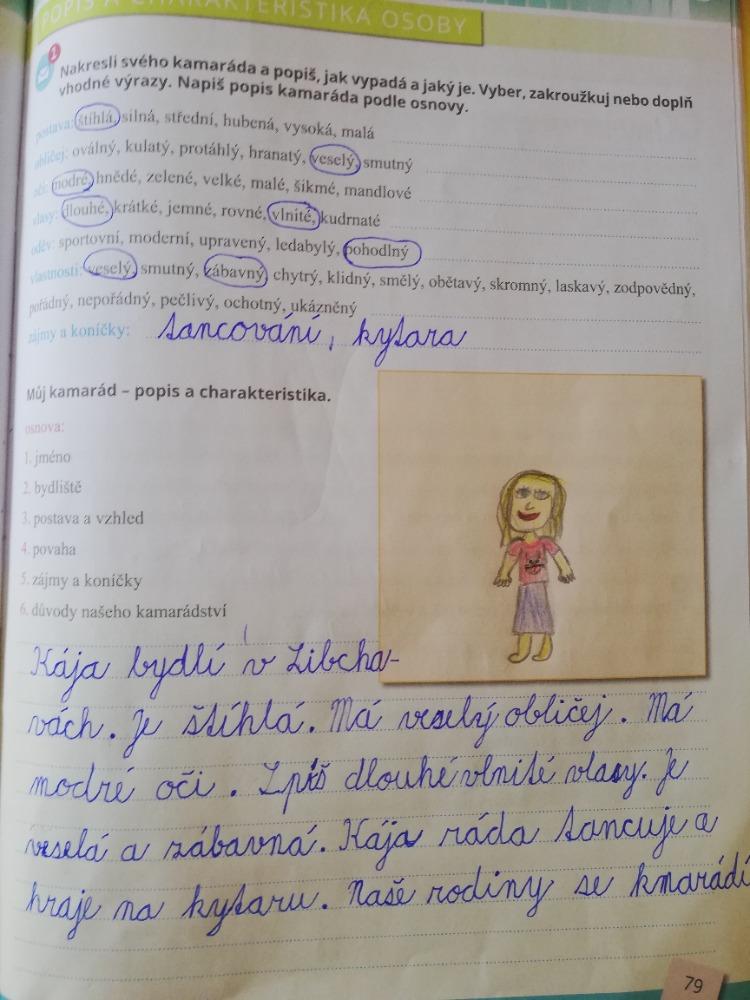 POPIS A CHARAKTERISTIKA OSOBY
1
Nakresli svého kamaráda a popiš, jak vypadá a jaký je. Vyber, zakroužkuj nebo doplň
vhodné výrazy. Napiš popis kamaráda podle osnovy.
postava: štíhlá, silná, střední, hubená, vysoká, malá
obličej: oválný, kulatý, protáhlý, hranatý, veselý, smutný
oči: modré, hnědé, zelené, velké, malé, šikmé, mandlové
vlasy: dlouhé, krátké, jemné, rovné, vlnité, kudrnaté
oděv: sportovní, moderní, upravený, ledabylý, pohodlný
vlastnosti: veselý, smutný, zábavný, chytrý, klidný, smělý, obětavý, skromný, laskavý, zodpovědný,
pořádný, nepořádný, pečlivý, ochotný, ukázněný
zájmy a koníčky: tancování, kytara
Můj kamarád – popis a charakteristika.
osnova:
1. jméno
2. bydliště
3. postava a vzhled
4. povaha
5. zájmy a koníčky
6. důvody našeho kamarádství
Kája bydlí v Libcha-
vách. Je štíhlá. Má veselý obličej. Má
modré oči. Spíš dlouhé vlnité vlasy. Je
veselá a zábavná. Kája ráda tancuje a
hraje na kytaru. Naše rodiny se kmarádí
79